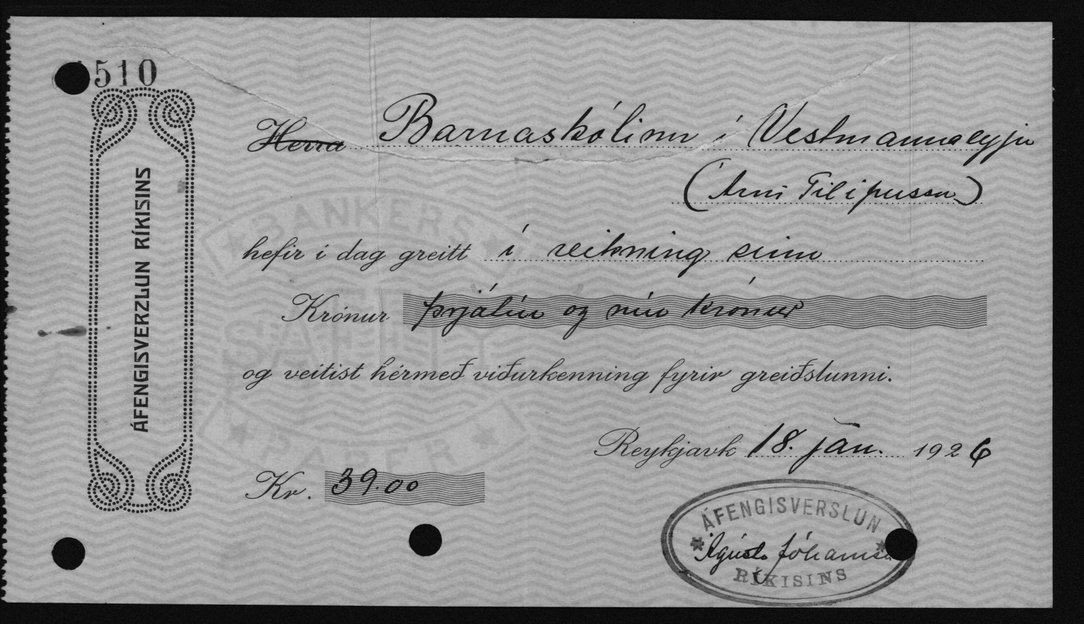 510
ÁFENGISVERZLUN RÍKISINS
Herra Barnaskólinn í Vestmannaeyju
(Árni Filipusson)
hefir í dag greitt í reikning sinn
Krónur þrjátíu og níu krónur
og veitist hérmeð viðurkenning fyrir greiðslunni.
Reykjavík 18. jan. 1926
Kr. 39.00
BANKERS
SAFETY
PAPER
ÁFENGISVERSLUN
Ágúst Jóhannss
RÍKISINS